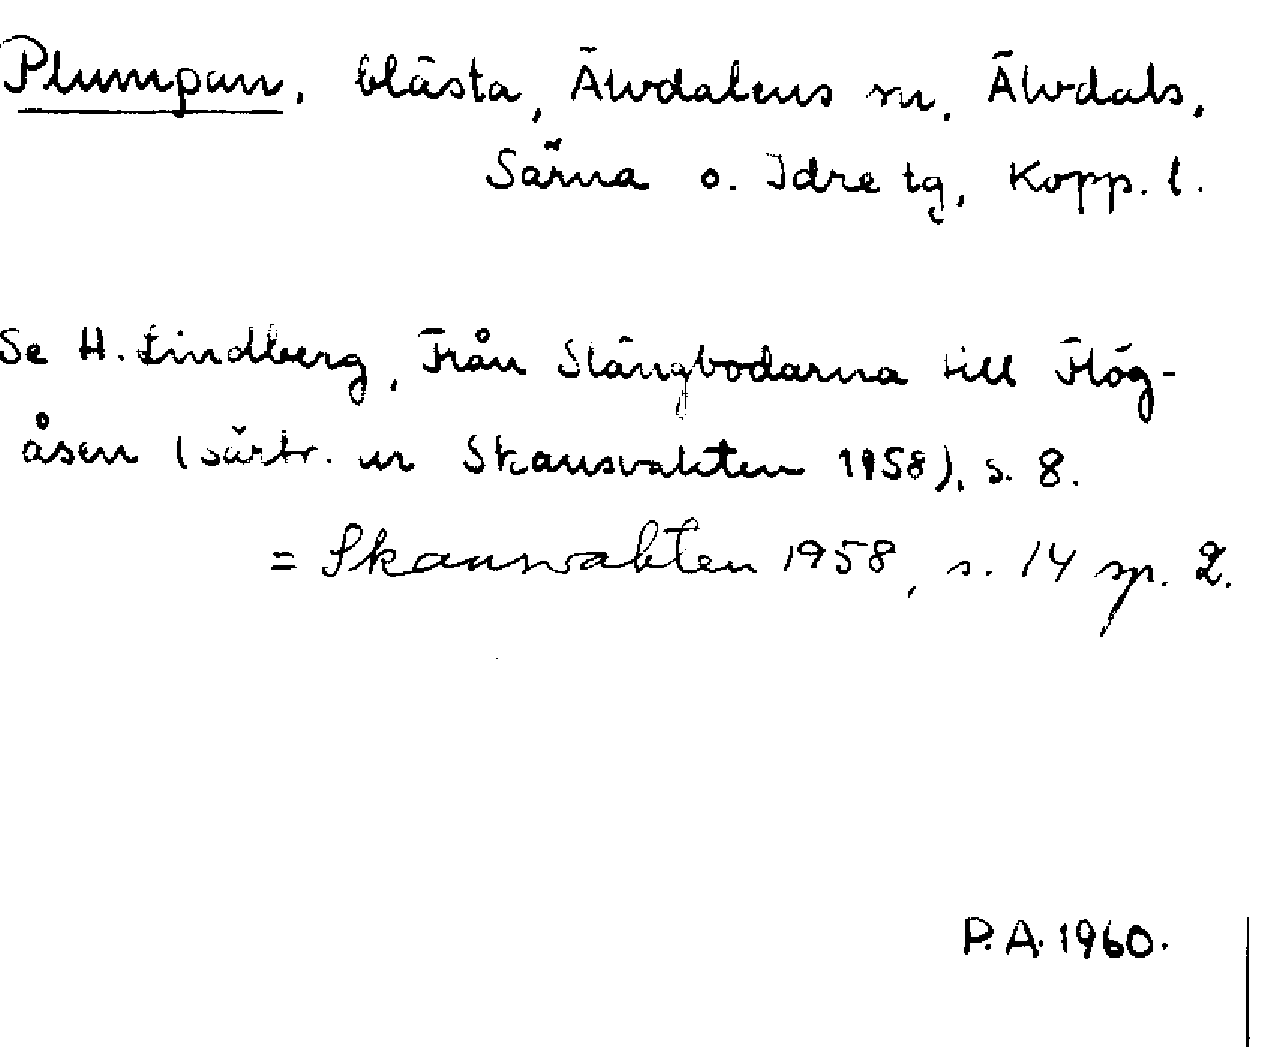 Plumpan, blästa, Älvdalens sn, Älvdals,
Särna o. Idre tg, Kopp. l.
Se H. Lindberg, Från Stängbodarna till Flög-
åsen (särtr. ur Skansvakten 1958), s. 8.
= Skansvakten 1958, s. 14 sp. 2.
P.A. 1960.